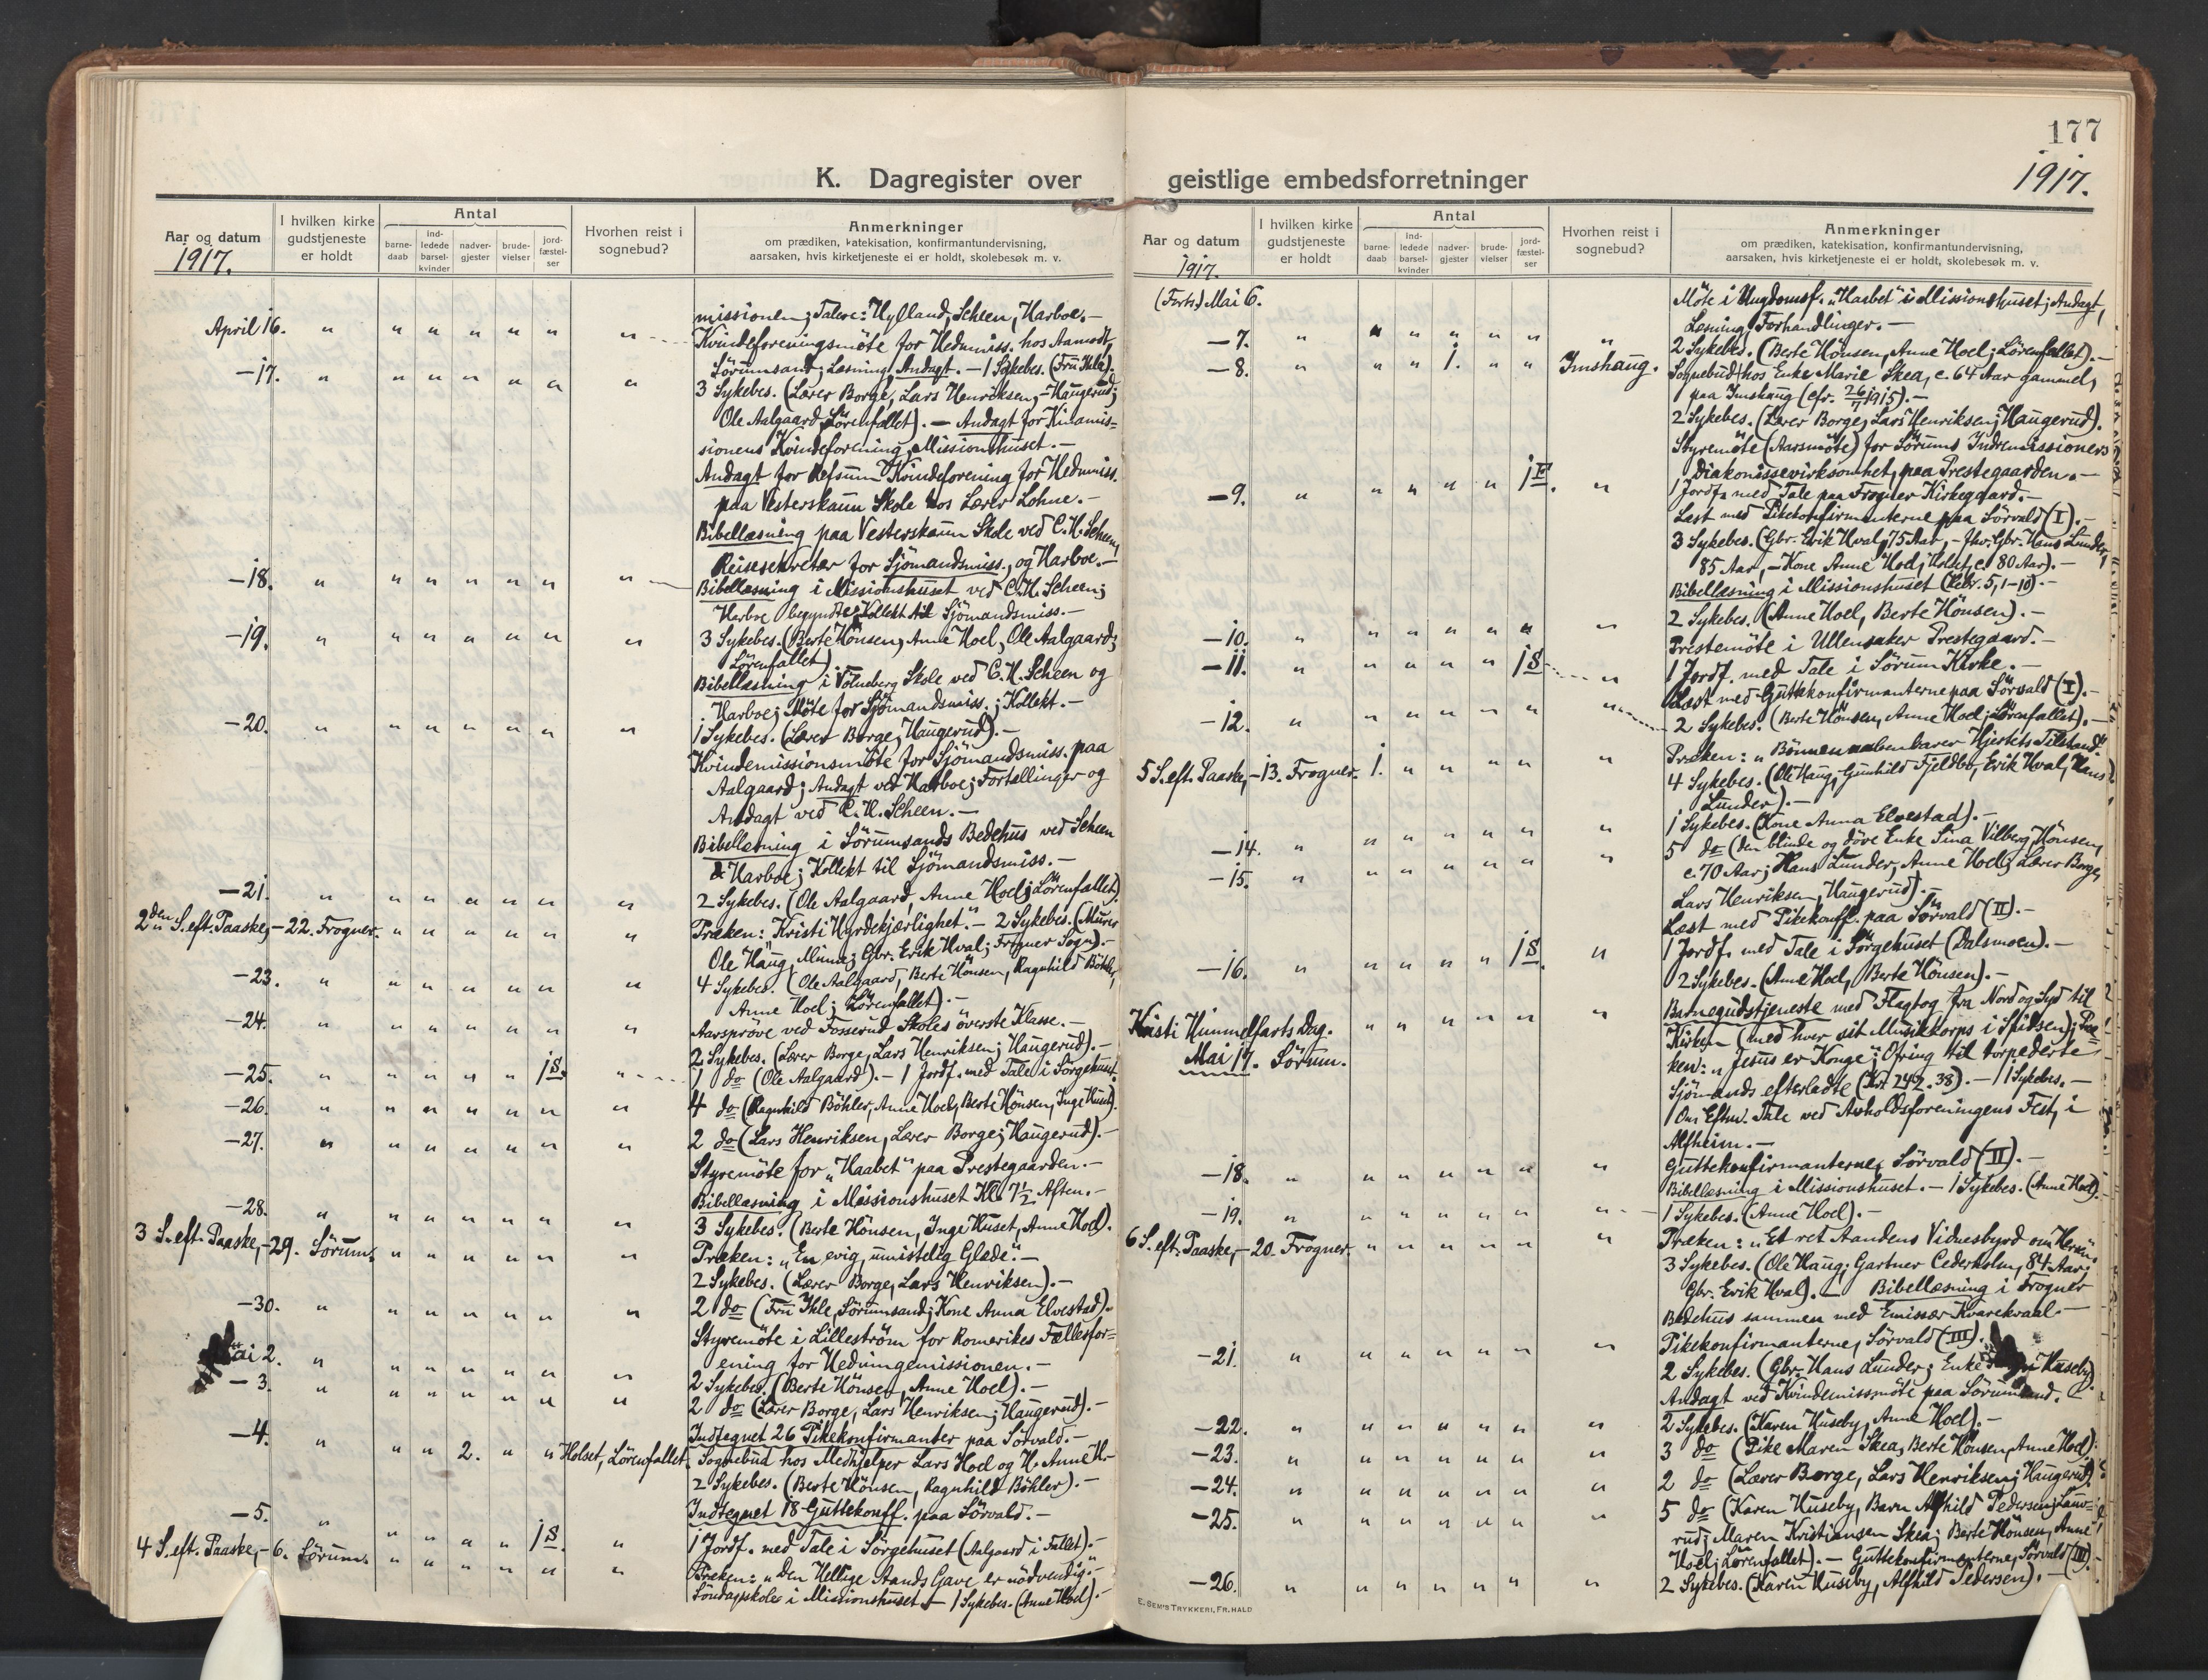 177
1917.
K. Dagregister over geistlige embedsforretninger
Aar og datum
1917.
I hvilken kirke gudstjeneste er holdt
Antal
barne-daab
ind-ledede barsel-kvinder
nadver-gjester
brude-vielser
jord-fæstel-ser
Hvorhen reist i sognebud?
Anmerkninger
om prædiken, katekisation, konfirmantundervisning,
aarsaken, hvis kirketjeneste ei er holdt, skolebesøk m. v.
missionen; Talere: Hylland, Scheen, Harboe.-
April 16. " " " " " " " Kvindeforeningsmöte for Hedmiss. hos Aamodt,
Sörumsand; Læsning, Andagt. - 1 Sykebes. (Fru Ihle).
-17. " " " " " " " 3 Sykebes. (Lærer Borge, Lars Henriksen, - Haugerud;
Ole Aalgaard, Lörenfallet). - Andagt for Kinamis=
sionens Kvindeforening, Missionshuset.-
Andagt for Refsum Kvindeforening for Hedmiss.
paa Vesterskaun Skole hos Lærer Lohne.-
Bibellæsning paa Vesterskaun Skole ved C. H. Scheen,
Reisesekretær for Sjömandsmiss., og Harboe.-
-18. " " " " " " " Bibellæsning i Missionshuset ved C. H. Scheen;
Harboe begyndte; Kollekt til Sjömandsmiss.-
-19. " " " " " " " 3 Sykebes. (Berte Hönsen, Anne Hoel, Ole Aalgaard;
Lörenfallet).
Bibellæsning i Völneberg Skole ved C. H. Scheen og
Harboe; Möte for Sjömandsmiss.; Kollekt.-
-20. " " " " " " " 1 Sykebes. (Lærer Borge; Haugerud).-
Kvindemissionsmöte for Sjömandsmiss. paa
Aalgaard; Andagt ved Harboe; Fortællinger og
Andagt ved C. H. Scheen.-
Bibellæsning i Sörumsands Bedehus ved Scheen
& Harboe; Kollekt til Sjömandsmiss.-
-21. " " " " " " " 2 Sykebes. (Ole Aalgaard, Anne Hoel; Lörenfallet)
2den S. eft. Paaske, -22. Frogner. " " " " " " Præken: "Kristi Hyrdekjærlighet." - 2 Sykebes. (Murer
Ole Haug, Gbr. Erik Hval; Frogner Sogn).-
-23. " " " " " " " 4 Sykebes. (Ole Aalgaard, Berte Hönsen, Ragnhild Böhler,
Anne Hoel; Lörenfallet).-
-24. " " " " " " " Aarspröve ved Fosserud Skoles överste Klasse.-
2 Sykebes. (Lærer Borge, Lars Henriksen; Haugerud).-
-25. " " " " " 1 S. " 1 do (Ole Aalgaard). - 1 Jordf. med Tale i Sörgehuset.
-26. " " " " " " " 4 do (Ragnhild Böhler, Anne Hoel, Berte Hönsen, Inge Huset).
-27. " " " " " " " 2 do (Lars Henriksen, Lærer Borge; Haugerud).-
Styremöte for "Haabet" paa Prestegaarden.-
Bibellæsning i Missionshuset Kl. 7½ Aften.-
-28. " " " " " " " 3 Sykebes. (Berte Hönsen, Inge Huset, Anne Hoel).
3 S. eft. Paaske, -29. Sörum. " " " " " " Præken: "En evig, umistelig Glæde." -
2 Sykebes. (Lærer Borge, Lars Henriksen).-
-30. " " " " " " " 2 do (Fru Ihle, Sörumsand; Kone Anna Elvestad).-
Styremöte i Lilleström for Romerikes Fællesfor=
ening for Hedningemissionen.-
Mai 2. " " " " " " " 2 Sykebes. (Berte Hönsen, Anne Hoel).-
-3. " " " " " " " 2 do (Lærer Borge, Lars Henriksen; Haugerud).-
Indtegnet 26 Pikekonfirmanter paa Sörvald.-
-4. " " " 2. " " Holset, Lörenfallet. Sognebud hos Medhjelper Lars Hoel og H. Anne H.-
2 Sykebes. (Berte Hönsen, Ragnhild Böhler).-
Indtegnet 18 Guttekonff. paa Sörvald.-
-5. " " " " " 1 S. " 1 Jordf. med Tale i Sörgehuset (Aalgaard i Fallet).-
4 S. eft. Paaske, -6. Sörum. " " " " " " Præken: "Den Hellige Aands Gave er nödvendig."-
Söndagsskole i Missionshuset. - 1 Sykebes. (Anne Hoel).-
Aar og datum
1917.
I hvilken kirke gudstjeneste er holdt
Antal
barne-daab
ind-ledede barsel-kvinder
nadver-gjester
brude-vielser
jord-fæstel-ser
Hvorhen reist i sognebud?
Anmerkninger
om prædiken, katekisation, konfirmantundervisning,
aarsaken, hvis kirketjeneste ei er holdt, skolebesøk m. v.
(Forts.) Mai 6. Möte i Ungdomsf. "Haabet" i Missionshuset; Andagt,
Læsning, Forhandlinger.-
-7. " " " " " " " 2 Sykebes. (Berte Hönsen, Anne Hoel; Lörenfallet).-
-8. " " " 1. " " Imshaug. Sognebud hos Enke Marie Skea, c. 64 Aar gammel,
paa Imshaug (cfr. 26/7 1915).-
2 Sykebes. (Lærer Borge, Lars Henriksen; Haugerud).
Styremöte (Aarsmöte) for Sörums Indremissioners
Diakonissevirksomhet, paa Prestegaarden.-
-9. " " " " " 1 F. " 1 Jordf. med Tale paa Frogner Kirkegaard.-
Læst med Pikekonfirmanterne paa Sörvald (I).-
3 Sykebes. (Gbr. Erik Hval, 75 Aar, - fhv. Gbr. Hans Lunder,
85 Aar, - Kone Anne Hoel, Holset, c. 80 Aar).-
Bibellæsning i Missionshuset (Hebr. 5, 1-10).-
-10. " " " " " " " 2 Sykebes. (Anne Hoel, Berte Hönsen).-
Prestemöte i Ullensaker Prestegaard.-
-11. " " " " " 1 S. " 1 Jordf. med Tale i Sörum Kirke.-
Læst med Guttekonfirmanterne paa Sörvald (I).-
-12. " " " " " " " 2 Sykebes. (Berte Hönsen, Anne Hoel; Lörenfallet).-
5 S. eft. Paaske, -13. Frogner. 1. " " " " " Præken: "Bönnen aabenbarer Hjertets Tilstand."
4 Sykebes. (Ole Haug, Gunhild Fjeldbo, Erik Hval, Hans
Lunder).-
-14. " " " " " " " 1 Sykebes. (Kone Anna Elvestad).-
-15. " " " " " " " 5 do (den blinde og döve Enke Lina Vilberg Hönsen,
c. 70 Aar; Hans Lunder, Anne Hoel; Lærer Borge,
Lars Henriksen, Haugerud).-
Læst med Pikekonff. paa Sörvald (II).-
-16. " " " " " 1 S. " 1 Jordf. med Tale i Sörgehuset (Dalsmoen).-
2 Sykebes. (Anne Hoel, Berte Hönsen).-
Kristi Himmelfarts Dag.
Mai 17. Sörum. " " " " " " Barnegudstjeneste med Flagtog fra Nord og Syd til
Kirken (med hver sit Musikkorps i Spidsen); Præ=
ken: "Jesus er Konge"; Ofring til torpederte
Sjömænds efterladte (Kr. 242.38). - 1 Sykebes.-
Om Eftm. Tale ved Avholdsforeningens Fest, i
Alfheim.-
-18. " " " " " " " Guttekonfirmanterne, Sörvald (II).-
Bibellæsning i Missionshuset. - 1 Sykebes. (Anne Hoel).
-19. " " " " " " " 1 Sykebes. (Anne Hoel).-
6 S. eft. Paaske, -20. Frogner. " " " " " " Præken: "Et ret Aandens Vidnesbyrd om Herren."
3 Sykebes. (Ole Haug; Gartner Cederholm, 84 Aar;
Gbr. Erik Hval). - Bibellæsning i Frogner
Bedehus sammen med Emissær Kvarekvaal.-
-21. " " " " " " " Pikekonfirmanterne, Sörvald (III).-
2 Sykebes. (Gbr. Hans Lunder; Enke Huseby)
Andagt ved Kvindemissmöte paa Sörumsand.-
-22. " " " " " " " 2 Sykebes. (Karen Huseby, Anne Hoel).-
-23. " " " " " " " 3 do (Pike Maren Skea, Berte Hönsen, Anne Hoel).
-24. " " " " " " " 2 do (Lærer Borge, Lars Henriksen; Haugerud)
-25. " " " " " " " 5 do (Karen Huseby, Barn Alfhild Pedersen,
rud; Maren Kristiansen Skea; Berte Hönsen, Anne
Hoel; Lörenfallet). - Guttekonfirmanterne, Sörvald (III).-
-26. " " " " " " " 2 Sykebes. (Karen Huseby, Alfhild Pedersen).-
E. SEM'S TRYKKERI, FR.HALD